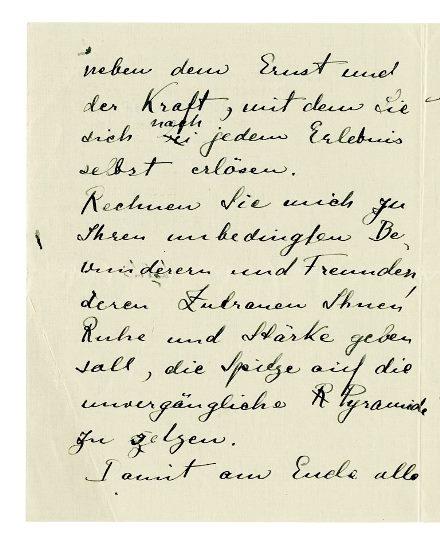 neben dem Ernst und
der Kraft, mit dem Sie
sich nach jedem Erlebnis
selbst erlösen.
Rechnen Sie mich zu
Ihren unbedingten Be-
wunderern und Freunden,
deren Zutrauen Ihnen
Ruhe und Stärke geben
soll, die Spitze auf die
unvergängliche Pyramide
zu setzen.
Damit am Ende alle